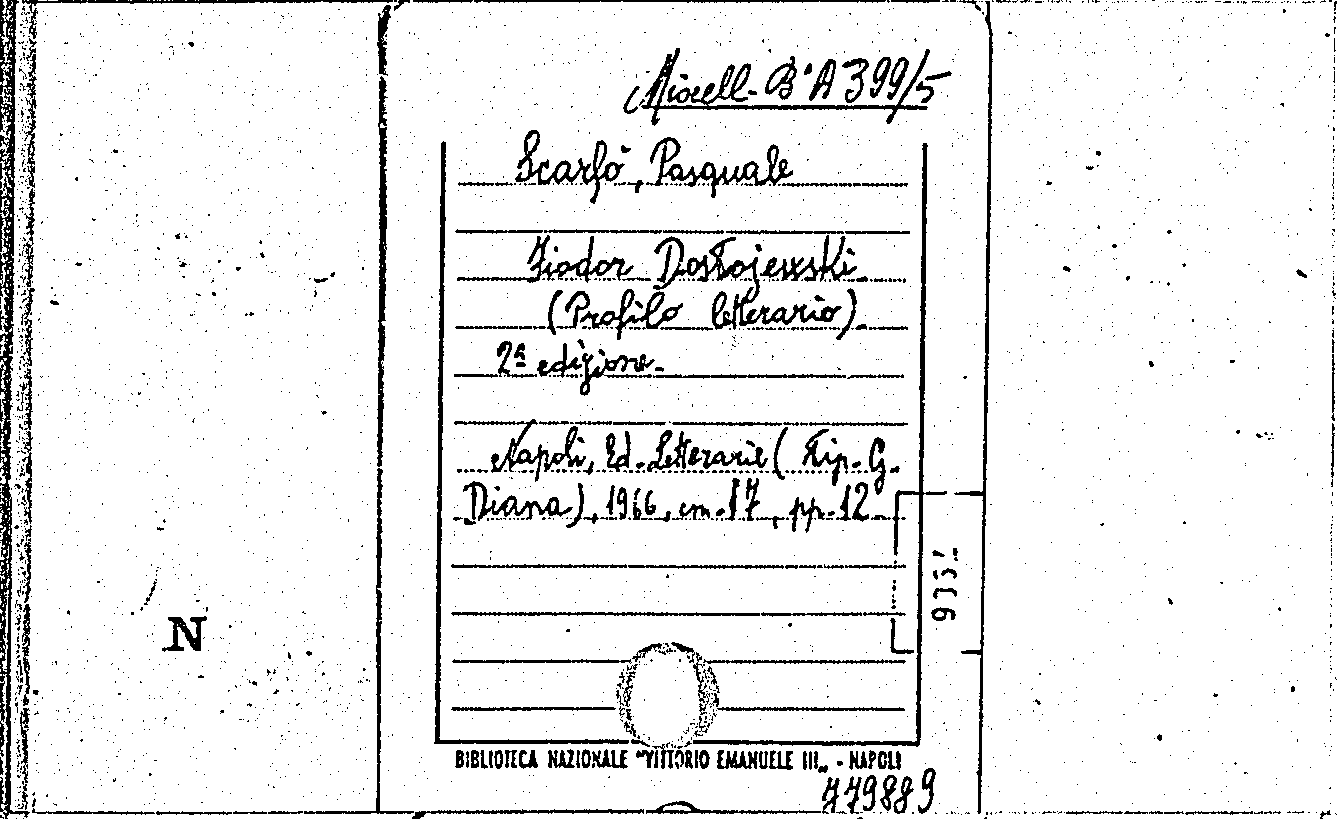 Miscell. Bª A 399/5
Scarfò, Pasquale
Fiodor Dostojewski
(Profilo letterario).
2ª edizione.
Napoli, Ed. Letterarie (Tip. G.
Diana), 1966, cm. 17, pp. 12
N
BIBLIOTECA NAZIONALE "VITTORIO EMANUELE III„ - NAPOLI
779889